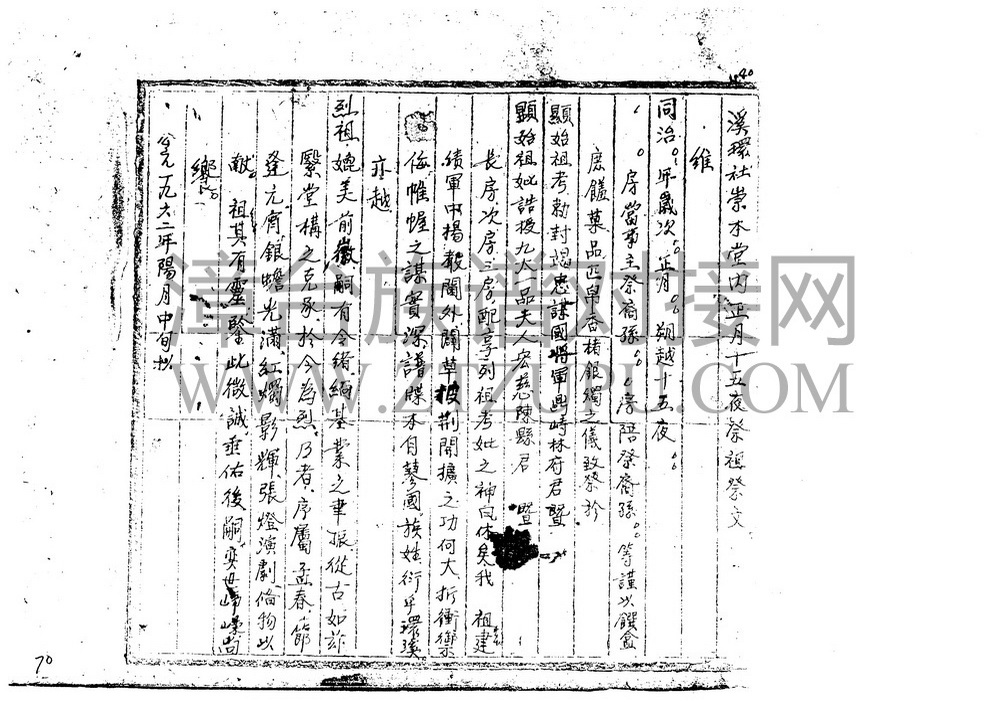 溪環社崇本堂内正月十五夜祭祖祭文
維
同治 年歲次 正月 朔越十五夜
房當事主祭裔孫 房陪祭裔孫 等謹以饌盒
庶饈菓品匹帛香楮銀燭之儀致祭於
顯始祖考勅封 忠謀國將軍 崎林府君暨
顯始祖妣誥授九人一品夫人宏慈陳縣君 暨
長房次房三房配享列祖考妣之神曰休矣我 祖建
績軍中揚 閫外闢草披荆開擴之功何大折衝禦
侮帷幄之謀實深譜牒本自 國族姓衍乎環溪
亦越
烈祖媲美前徽嗣有令緒緬基業之聿 從古如兹
繄堂構之克承於今為烈乃者序屬孟春節
逢元宵銀蟾光滿紅燭影輝張燈演劇俻物以
獻 祖其有靈鑒此微誠垂佑後嗣奕世 嶸尚
饗
公元一九六二年陽月中旬抄
70
漳台族谱对接网
WWW.ZTZUPU.COM